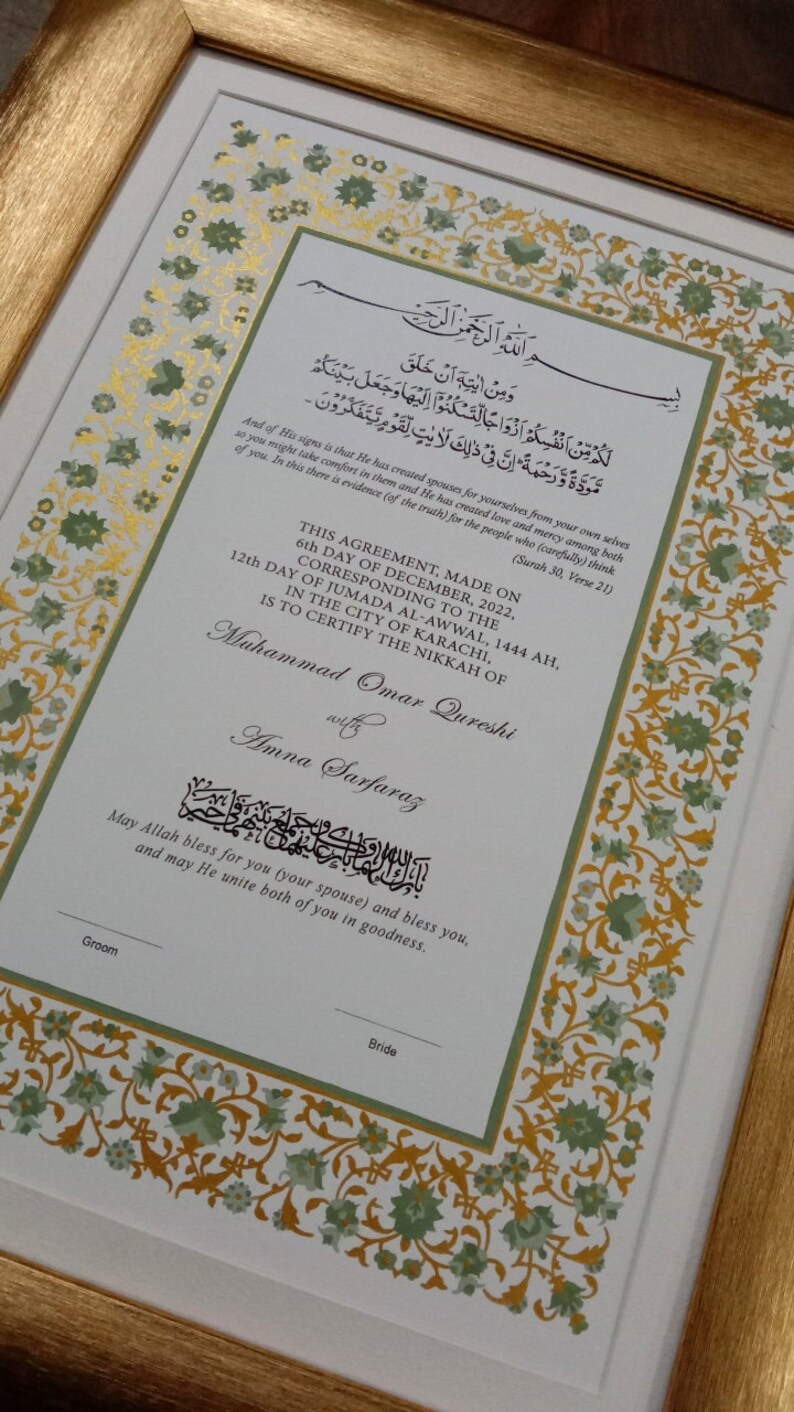 بِسْمِ اللّٰهِ الرَّحْمٰنِ الرَّحِيْمِ
وَمِنْ اٰيٰتِهٖٓ اَنْ خَلَقَ
لَكُمْ مِّنْ اَنْفُسِكُمْ اَزْوَاجًا لِّتَسْكُنُوْٓا اِلَيْهَا وَجَعَلَ بَيْنَكُمْ
مَّوَدَّةً وَّرَحْمَةً ؕ اِنَّ فِيْ ذٰلِكَ لَاٰيٰتٍ لِّقَوْمٍ يَّتَفَكَّرُوْنَ -
And of His signs is that He has created spouses for yourselves from your own selves
so you might take comfort in them and He has created love and mercy among both
of you. In this there is evidence (of the truth) for the people who (carefully) think
(Surah 30, Verse 21)
THIS AGREEMENT, MADE ON
6th DAY OF DECEMBER, 2022,
CORRESPONDING TO THE
12th DAY OF JUMADA AL-AWWAL, 1444 AH,
IN THE CITY OF KARACHI,
IS TO CERTIFY THE NIKKAH OF
Muhammad Omar Qureshi
with
Amna Sarfaraz
بَارَكَ اللهُ لَهُمَا وَبَارَكَ عَلَيْهِمَا وَجَمَعَ بَيْنَهُمَا فِي خَيْرٍ
May Allah bless for you (your spouse) and bless you,
and may He unite both of you in goodness.
Groom
Bride